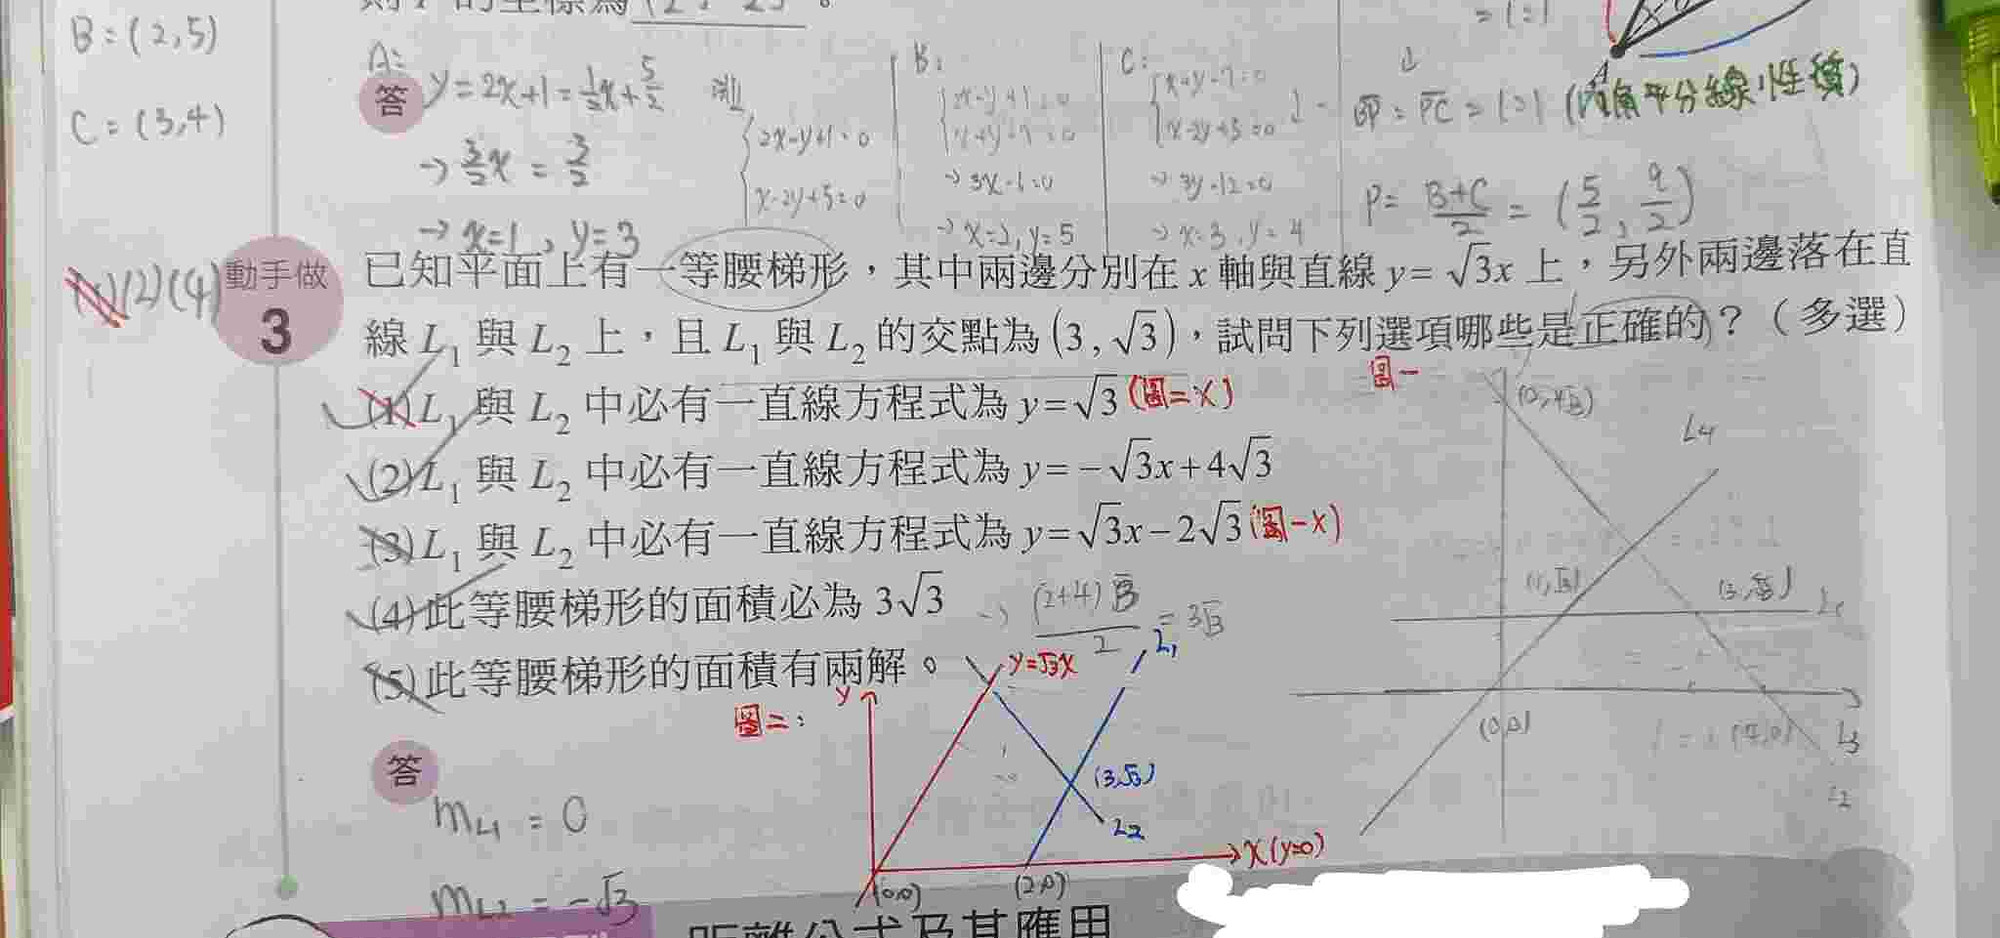 B=(2,5)
C=(3,4)
A:
答 y=2x+1=1/2x+5/2
→ 3/2x = 3/2
→ x=1, y=3
{2x-y+1=0
x-2y+5=0
B:
{2x-y+1=0
x+y-7=0
→ 3x-6=0
→ x=2, y=5
C:
{x+y-7=0
x-2y+5=0
→ 3y-12=0
→ x=3, y=4
=1:1
↓
BP:PC=1:1 (內角平分線性質)
P= B+C/2 = (5/2, 9/2)
(1)(2)(4)
動手做
3
已知平面上有一等腰梯形,其中兩邊分別在 x 軸與直線 y=√3x 上,另外兩邊落在直
線 L₁ 與 L₂ 上,且 L₁ 與 L₂ 的交點為 (3, √3),試問下列選項哪些是正確的?(多選)
(1) L₁ 與 L₂ 中必有一直線方程式為 y=√3 (圖二x)
(2) L₁ 與 L₂ 中必有一直線方程式為 y=-√3x+4√3
(3) L₁ 與 L₂ 中必有一直線方程式為 y=√3x-2√3 (圖一x)
(4) 此等腰梯形的面積必為 3√3 → (2+4)√3/2 = 3√3
(5) 此等腰梯形的面積有兩解。
圖一
(0,4√3)
L4
(1,√3)
(3,√3)
L1
(0,0)
(4,0)
L3
L2
圖二:
y
y=√3x
L1
(3,√3)
L2
x(y=0)
(0,0)
(2,0)
答
mL1 = 0
mL2 = -√3
距離公式及其應用